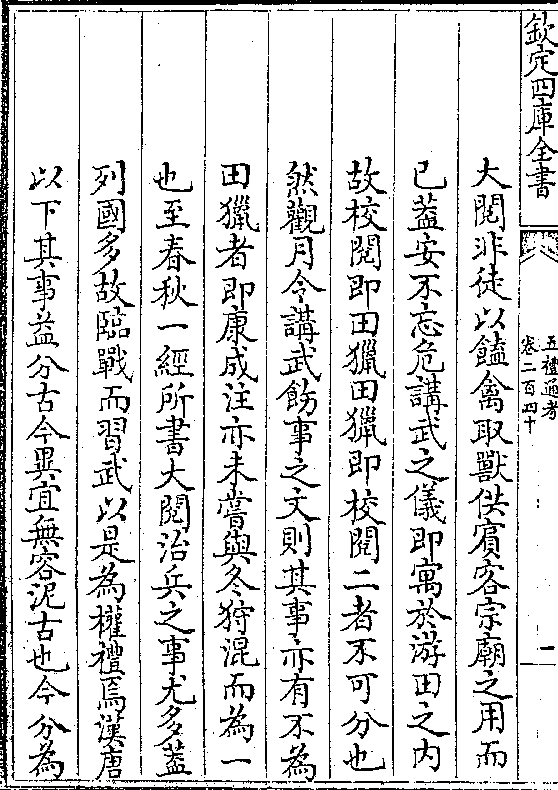 欽定四庫全書
五禮通考
卷二百四十
一
大閱非徒以饁禽取獸供賓客宗廟之用而
已葢安不忘危講武之儀即寓於游田之内
故校閱即田獵田獵即校閱二者不可分也
然觀月令講武飭事之文則其事亦有不為
田獵者即康成注亦未嘗與冬狩混而為一
也至春秋一經所書大閱治兵之事尤多葢
列國多故臨戰而習武以是為權禮焉漢唐
以下其事益分古今異宜無容泥古也今分為